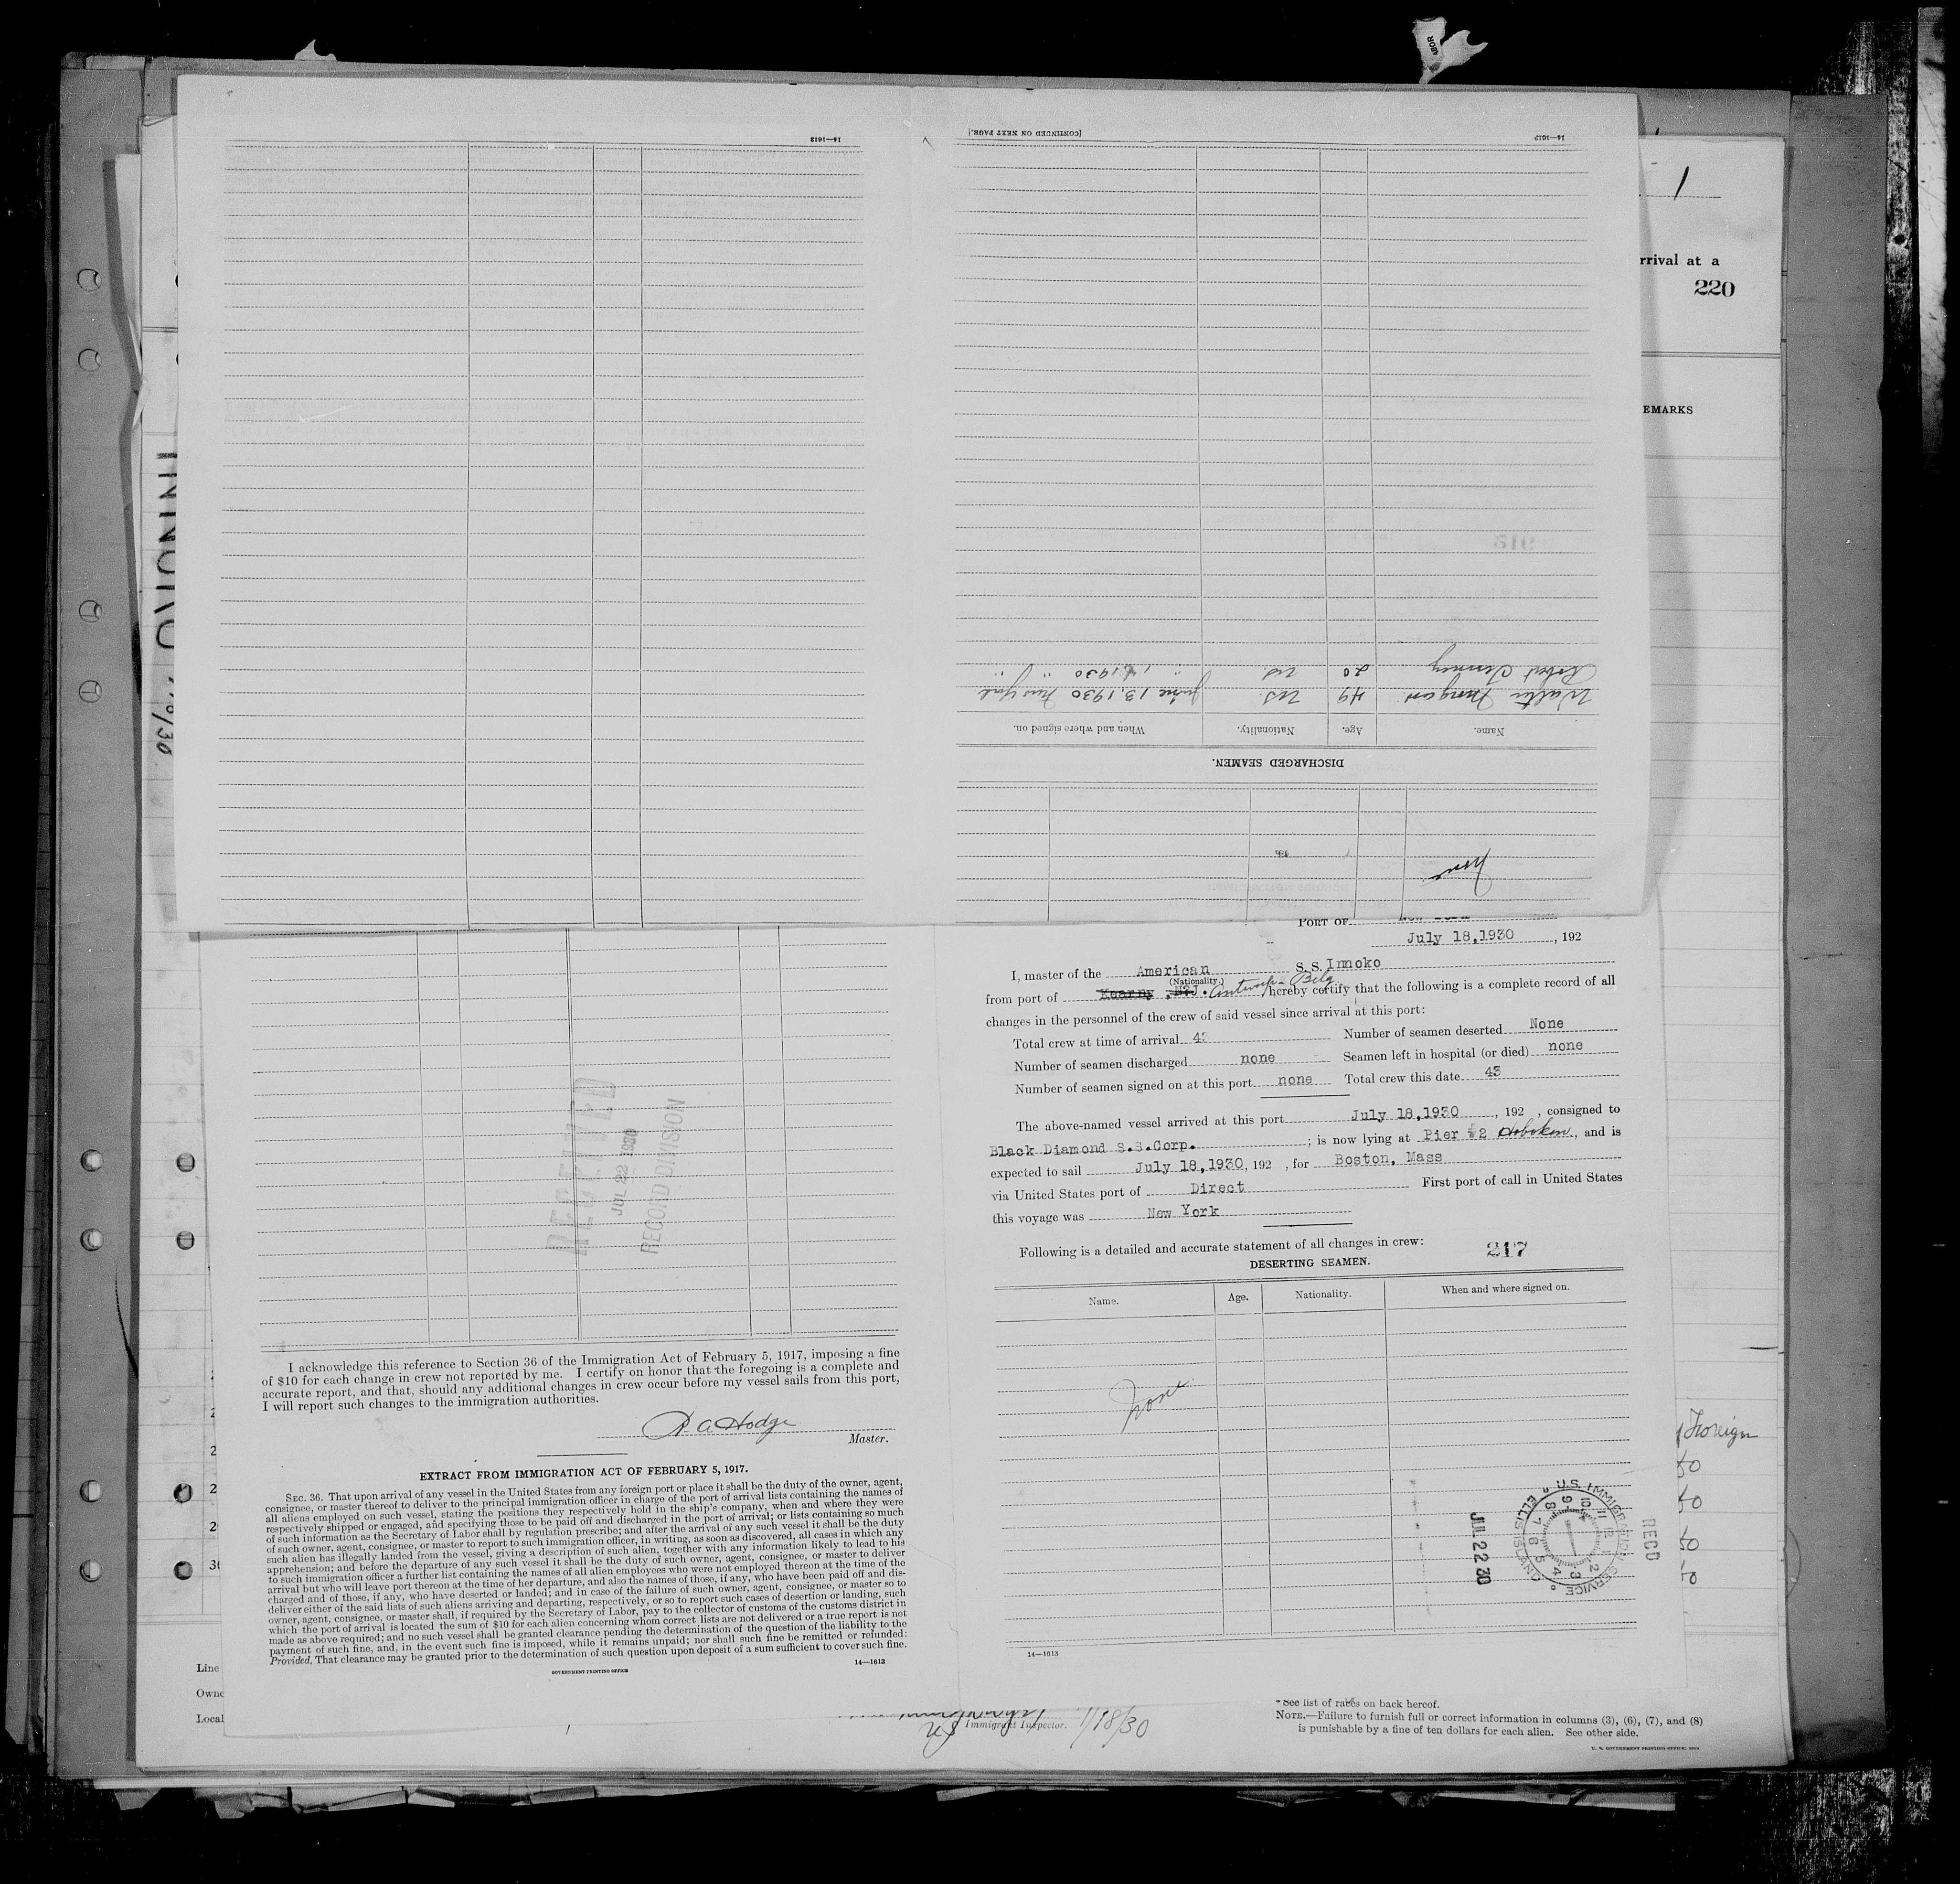 ABOR
14—1613
[CONTINUED ON NEXT PAGE.]
14—1612
1
rrival at a
220
EMARKS
Robert 20 US. " 1, 1930 " "
Walter 49 US. June 13, 1930 New York
Name. Age. Nationality. When and where signed on.
DISCHARGED SEAMEN.
None
PORT OF
July 18,1930, 192
I, master of the American S. S. Innoko
(Nationality.)
from port of Kearny, N.J. Antwerp - Belg. hereby certify that the following is a complete record of all
changes in the personnel of the crew of said vessel since arrival at this port:
Total crew at time of arrival 43 Number of seamen deserted None
Number of seamen discharged none Seamen left in hospital (or died) none
Number of seamen signed on at this port none Total crew this date 43
The above-named vessel arrived at this port July 18,1930, 192 , consigned to
Black Diamond S.S.Corp. ; is now lying at Pier #2 Hoboken, and is
expected to sail July 18,1930, 192 , for Boston, Mass
via United States port of Direct First port of call in United States
this voyage was New York
Following is a detailed and accurate statement of all changes in crew:
217
DESERTING SEAMEN.
Name. Age. Nationality. When and where signed on.
None
RECD
U.S. IMMIGRATION SERVICE
ELLIS ISLAND
JUL 22 30
14—1613
RECEIVED
JUL 22 1930
RECORD DIVISION
I acknowledge this reference to Section 36 of the Immigration Act of February 5, 1917, imposing a fine
of $10 for each change in crew not reported by me. I certify on honor that the foregoing is a complete and
accurate report, and that, should any additional changes in crew occur before my vessel sails from this port,
I will report such changes to the immigration authorities.
R A Hodge
Master.
EXTRACT FROM IMMIGRATION ACT OF FEBRUARY 5, 1917.
SEC. 36. That upon arrival of any vessel in the United States from any foreign port or place it shall be the duty of the owner, agent,
consignee, or master thereof to deliver to the principal immigration officer in charge of the port of arrival lists containing the names of
all aliens employed on such vessel, stating the positions they respectively hold in the ship's company, when and where they were
respectively shipped or engaged, and specifying those to be paid off and discharged in the port of arrival; or lists containing so much
of such information as the Secretary of Labor shall by regulation prescribe; and after the arrival of any such vessel it shall be the duty
of such owner, agent, consignee, or master to report to such immigration officer, in writing, as soon as discovered, all cases in which any
such alien has illegally landed from the vessel, giving a description of such alien, together with any information likely to lead to his
apprehension; and before the departure of any such vessel it shall be the duty of such owner, agent, consignee, or master to deliver
to such immigration officer a further list containing the names of all alien employees who were not employed thereon at the time of the
arrival but who will leave port thereon at the time of her departure, and also the names of those, if any, who have been paid off and dis-
charged and of those, if any, who have deserted or landed; and in case of the failure of such owner, agent, consignee, or master so to
deliver either of the said lists of such aliens arriving and departing, respectively, or so to report such cases of desertion or landing, such
owner, agent, consignee, or master shall, if required by the Secretary of Labor, pay to the collector of customs of the customs district in
which the port of arrival is located the sum of $10 for each alien concerning whom correct lists are not delivered or a true report is not
made as above required; and no such vessel shall be granted clearance pending the determination of the question of the liability to the
payment of such fine, and, in the event such fine is imposed, while it remains unpaid; nor shall such fine be remitted or refunded:
Provided, That clearance may be granted prior to the determination of such question upon deposit of a sum sufficient to cover such fine.
GOVERNMENT PRINTING OFFICE
14—1613
Foreign
Line
Owne
Local
Immigrant Inspector.
*See list of races on back hereof.
NOTE.—Failure to furnish full or correct information in columns (3), (6), (7), and (8)
is punishable by a fine of ten dollars for each alien. See other side.